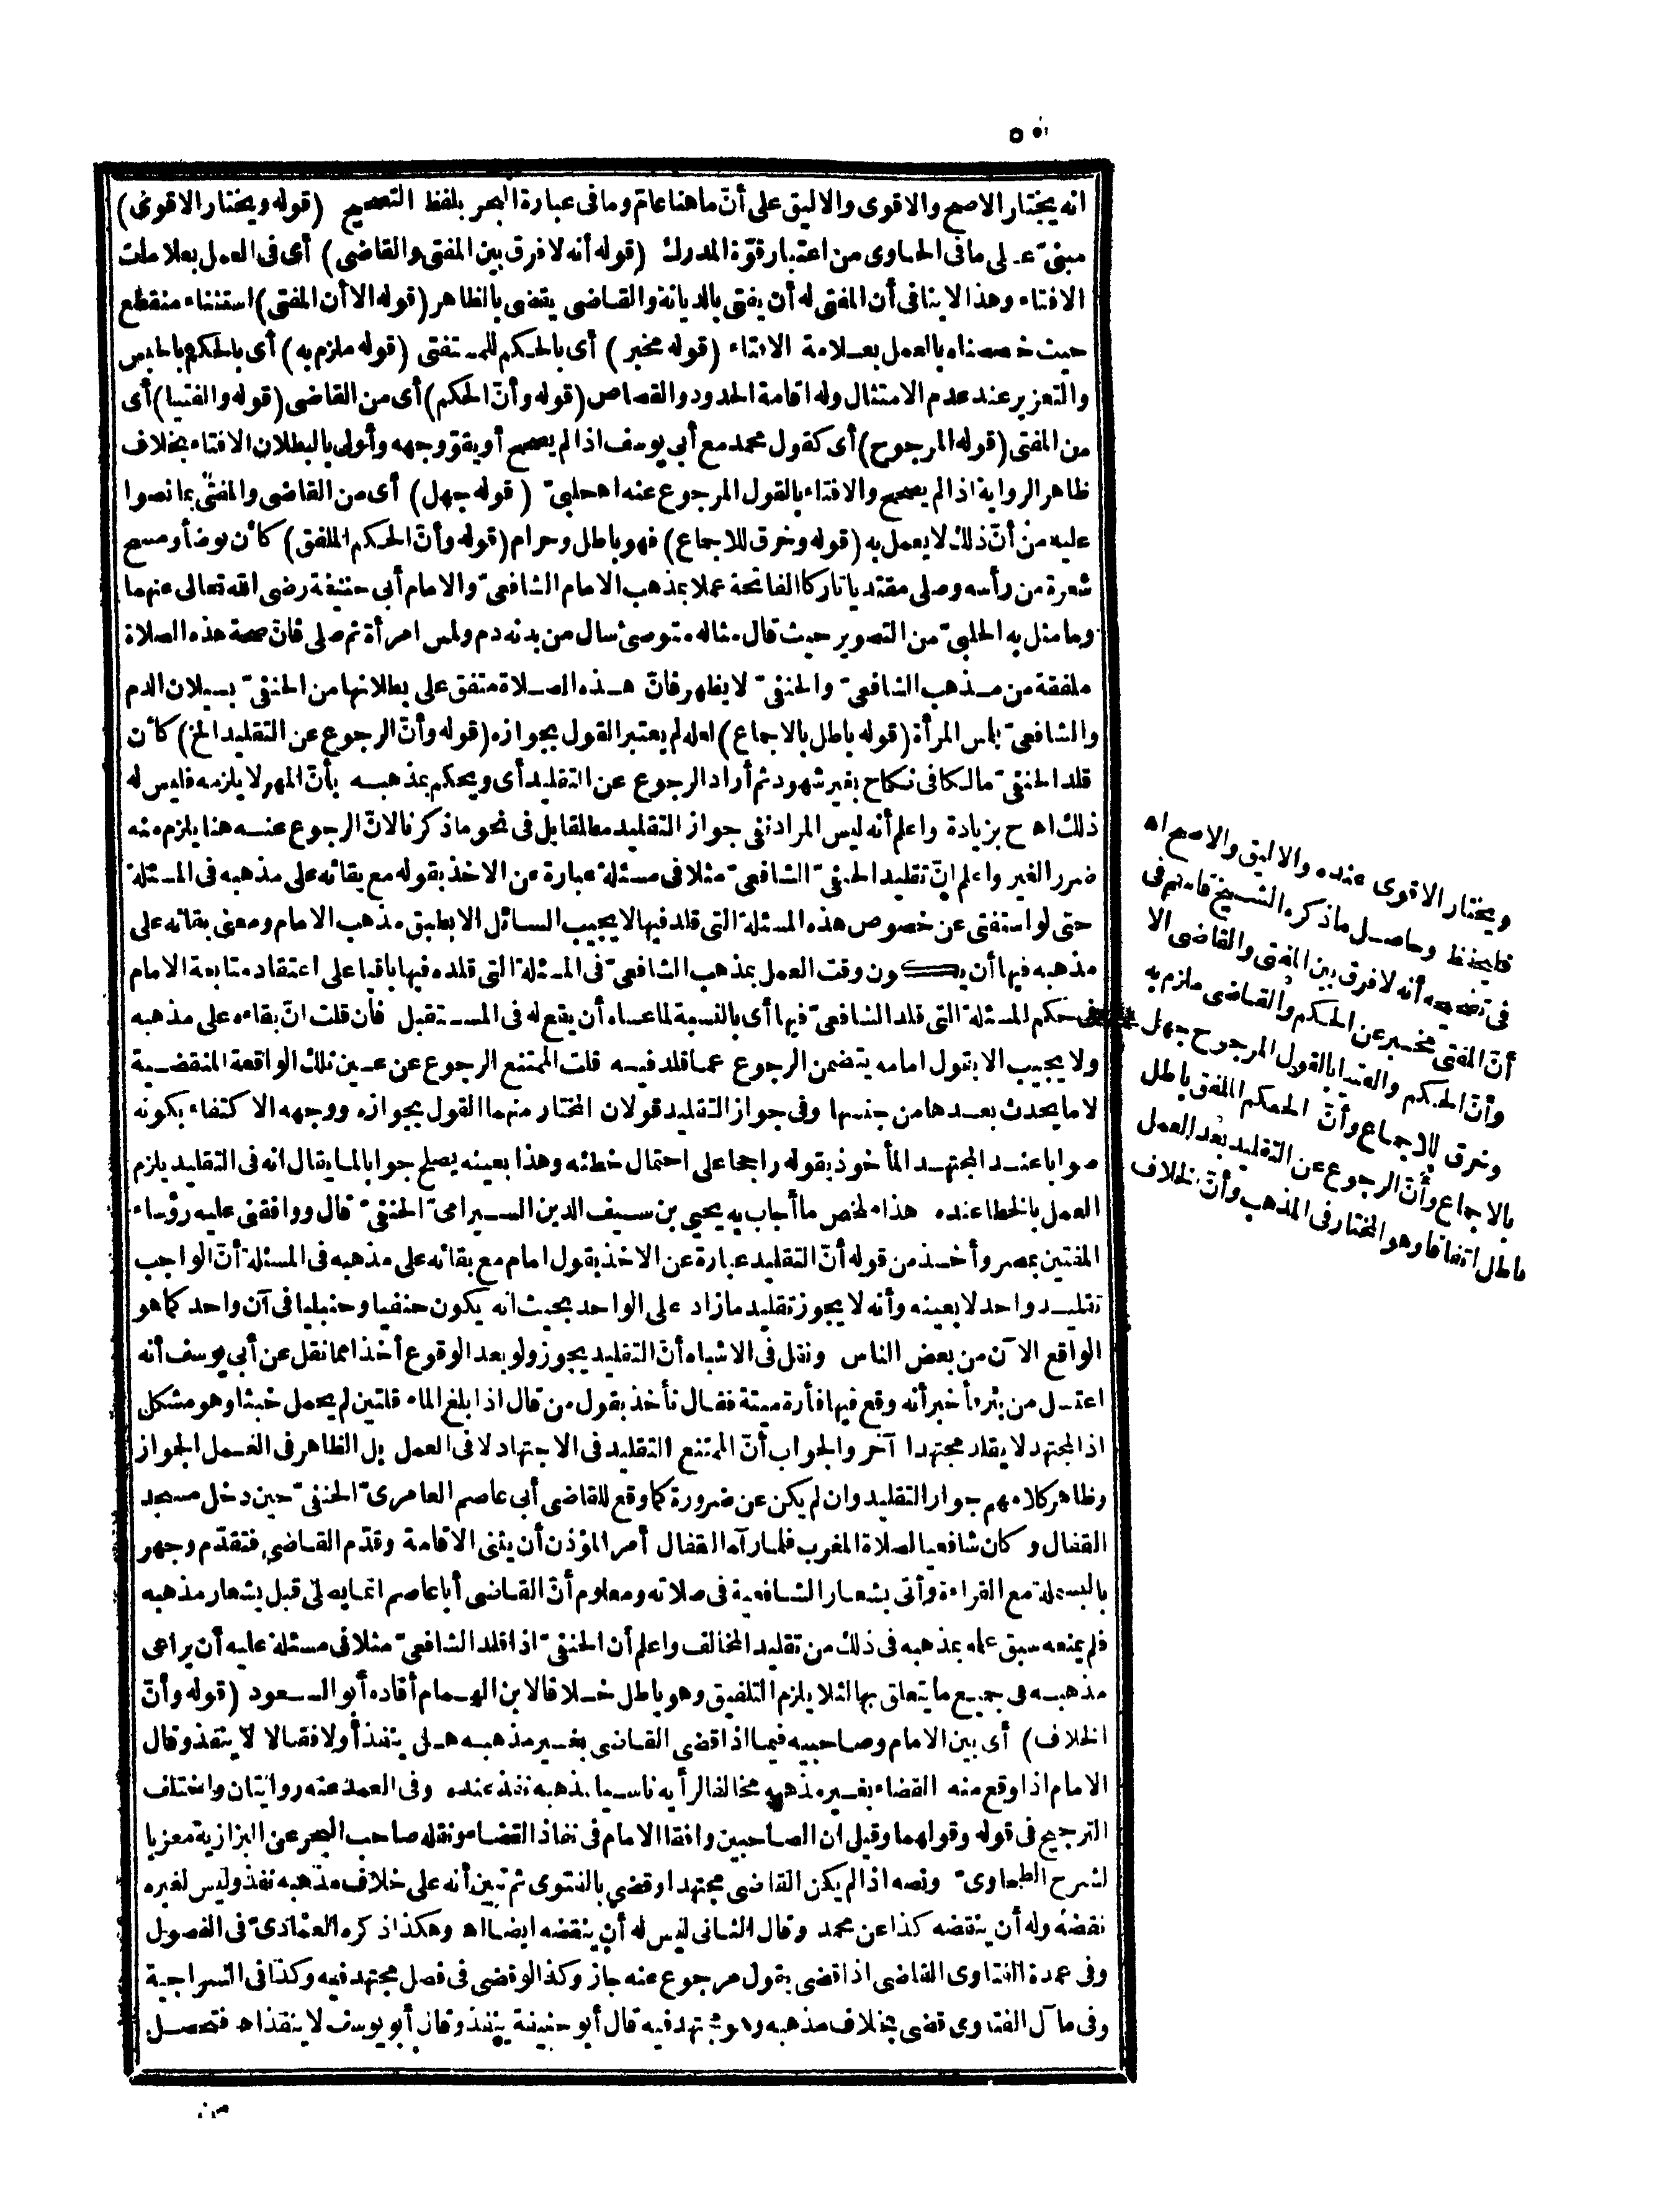 انه يختار الاصح والاقوى والاليق على أنّ ما هنا عامّ وما فى عبارة البحر بلفظ التصحيح (قوله ويختار الاقوى)
مبنىّ على ما فى الحاوى من اعتبار قوّة المدرك (قوله أنه لا فرق بين المفتى والقاضى) أى فى العمل بعلامات
الافتاء وهذا لا ينافى أن المفتى له أن يفتى بالديانة والقاضى يقضى بالظاهر (قوله الا أن المفتى) استثناء منقطع
حيث خصصناه بالعمل بعلامة الافتاء (قوله مخبر) أى بالحكم للمستفتى (قوله ملزم به) أى بالحكم بالحبس
والتعزير عند عدم الامتثال وله اقامة الحدود والقصاص (قوله وأنّ الحكم) أى من القاضى (قوله والفتيا) أى
من المفتى (قوله المرجوح) أى كقول محمد مع أبي يوسف اذا لم يصحح أو يقوّ وجهه وأولى بالبطلان الافتاء بخلاف
ظاهر الرواية اذا لم يصحح والافتاء بالقول المرجوع عنه اه حلبىّ (قوله جهل) أى من القاضى والمفتى بما نصوا
عليه من أنّ ذلك لا يعمل به (قوله وخرق للاجماع) فهو باطل وحرام (قوله وأنّ الحكم الملفق) كأن توضأ ومسح
شعرة من رأسه وصلى مقتديا تاركا الفاتحة عملا بمذهب الامام الشافعىّ والامام أبى حنيفة رضى الله تعالى عنهما
وما مثل به الحلبىّ من التصوير حيث قال مثاله متوضئ سال من بدنه دم ولمس امرأة ثم صلى فانّ صحة هذه الصلاة
ملفقة من مذهب الشافعىّ والحنفىّ لا يظهر فانّ هذه الصلاة متفق على بطلانها من الحنفىّ بسيلان الدم
والشافعىّ بلمس المرأة (قوله باطل بالاجماع) لعله لم يعتبر القول بجوازه (قوله وأنّ الرجوع عن التقليد الخ) كأن
قلد الحنفىّ مالكا فى نكاح بغير شهود ثم أراد الرجوع عن التقليد أى ويحكم بمذهبه بأنّ المهر لا يلزمه فليس له
ذلك اه ح بزيادة واعلم أنه ليس المراد نفى جواز التقليد مطلقا بل فى نحو ما ذكرنا لانّ الرجوع عنه هنا يلزم منه
ضرر الغير واعلم انّ تقليد الحنفىّ الشافعىّ مثلا فى مسئلة عبارة عن الاخذ بقوله مع بقائه على مذهبه فى المسئلة
حتى لو استفتى عن خصوص هذه المسئلة التى قلد فيها لا يجيب السائل الا بطبق مذهب الامام ومعنى بقائه على
مذهبه فيها أن يكون وقت العمل بمذهب الشافعىّ فى المسئلة التى قلده فيها باقيا على اعتقاد متابعة الامام
فى حكم المسئلة التى قلد الشافعىّ فيها أى بالنسبة لما عساه أن يقع له فى المستقبل فان قلت انّ بقاءه على مذهبه
ولا يجيب الا بقول امامه يتضمن الرجوع عما قلد فيه قلت الممتنع الرجوع عن عين تلك الواقعة المنقضية
لا ما يحدث بعدها من جنسها وفى جواز التقليد قولان المختار منهما القول بجوازه ووجهه الاكتفاء بكونه
صوابا عند المجتهد المأخوذ بقوله راجحا على احتمال خطئه وهذا بعينه يصلح جوابا لما يقال انه فى التقليد يلزم
العمل بالخطا عنده هذا ملخص ما أجاب به يحيى بن سيف الدين السيرامىّ الحنفىّ قال ووافقنى عليه رؤساء
المفتين بمصر وأخذ من قوله أنّ التقليد عبارة عن الاخذ بقول امام مع بقائه على مذهبه فى المسئلة أنّ الواجب
تقليد واحد لا بعينه وأنه لا يجوز تقليد ما زاد على الواحد بحيث انه يكون حنفيا وحنبليا فى آن واحد كما هو
الواقع الآن من بعض الناس ونقل فى الاشباه أنّ التقليد يجوز ولو بعد الوقوع أخذا مما نقل عن أبي يوسف أنه
اغتسل من بئر فأخبر أنه وقع فيها فأرة ميتة فقال نأخذ بقول من قال اذا بلغ الماء قلتين لم يحمل خبثا وهو مشكل
اذ المجتهد لا يقلد مجتهدا آخر والجواب أنّ الممتنع التقليد فى الاجتهاد لا فى العمل بل الظاهر فى العمل الجواز
وظاهر كلامهم جواز التقليد وان لم يكن عن ضرورة كما وقع للقاضى أبى عاصم العامرىّ الحنفىّ حين دخل مسجد
القفال وكان شافعيا لصلاة المغرب فلما رآه القفال أمر المؤذن أن يثنى الاقامة وقدّم القاضى فتقدّم وجهر
بالبسملة مع القراءة وأتى بشعار الشافعية فى صلاته ومعلوم أنّ القاضى أبا عاصم انما يصلى قبل بشعار مذهبه
فلم يمنعه سبق عمله بمذهبه فى ذلك من تقليد المخالف واعلم أن الحنفىّ اذا قلد الشافعىّ مثلا فى مسئلة عليه أن يراعى
مذهبه فى جميع ما يتعلق بها لئلا يلزم التلفيق وهو باطل خلافا لابن الهمام أفاده أبو السعود (قوله وأنّ
الخلاف) أى بين الامام وصاحبيه فيما اذا قضى القاضى بغير مذهبه هل ينفذ أولا فقالا لا ينفذ وقال
الامام اذا وقع منه القضاء بغير مذهبه مخالفا لرأيه ناسيا لمذهبه نفذ عنده وفى العمد عنه روايتان واختلف
الترجيح فى قوله وقولهما وقيل ان الصاحبين وافقا الامام فى نفاذ القضاء ونقله صاحب البحر عن البزازية معزيا
لشرح الطحاوىّ ونصه اذا لم يكن القاضى مجتهدا وقضى بالفتوى ثم تبين أنه على خلاف مذهبه نفذ وليس لغيره
نقضه وله أن ينقضه كذا عن محمد وقال الثانى ليس له أن ينقضه ايضا اه وهكذا ذكره العمادىّ فى الفصول
وفى عمدة الفتاوى القاضى اذا قضى بقول مرجوع عنه جاز وكذا لو قضى فى فصل مجتهد فيه وكذا فى السراجية
وفى مآل الفتاوى قضى بخلاف مذهبه وهو مجتهد فيه قال أبو حنيفة ينفذ وقال أبو يوسف لا ينفذ اه فتحصل
من
ويختار الاقوى عنده والاليق والاصح اه
فليحفظ وحاصل ما ذكره الشيخ قاسم فى
فى تصحيحه أنه لا فرق بين المفتى والقاضى الا
أنّ المفتى مخبر عن الحكم والقاضى ملزم به
وأنّ الحكم والفتيا بالقول المرجوح جهل
وخرق للاجماع وأنّ الحكم الملفق باطل
بالاجماع وأنّ الرجوع عن التقليد بعد العمل
باطل اتفاقا وهو المختار فى المذهب وأنّ الخلاف